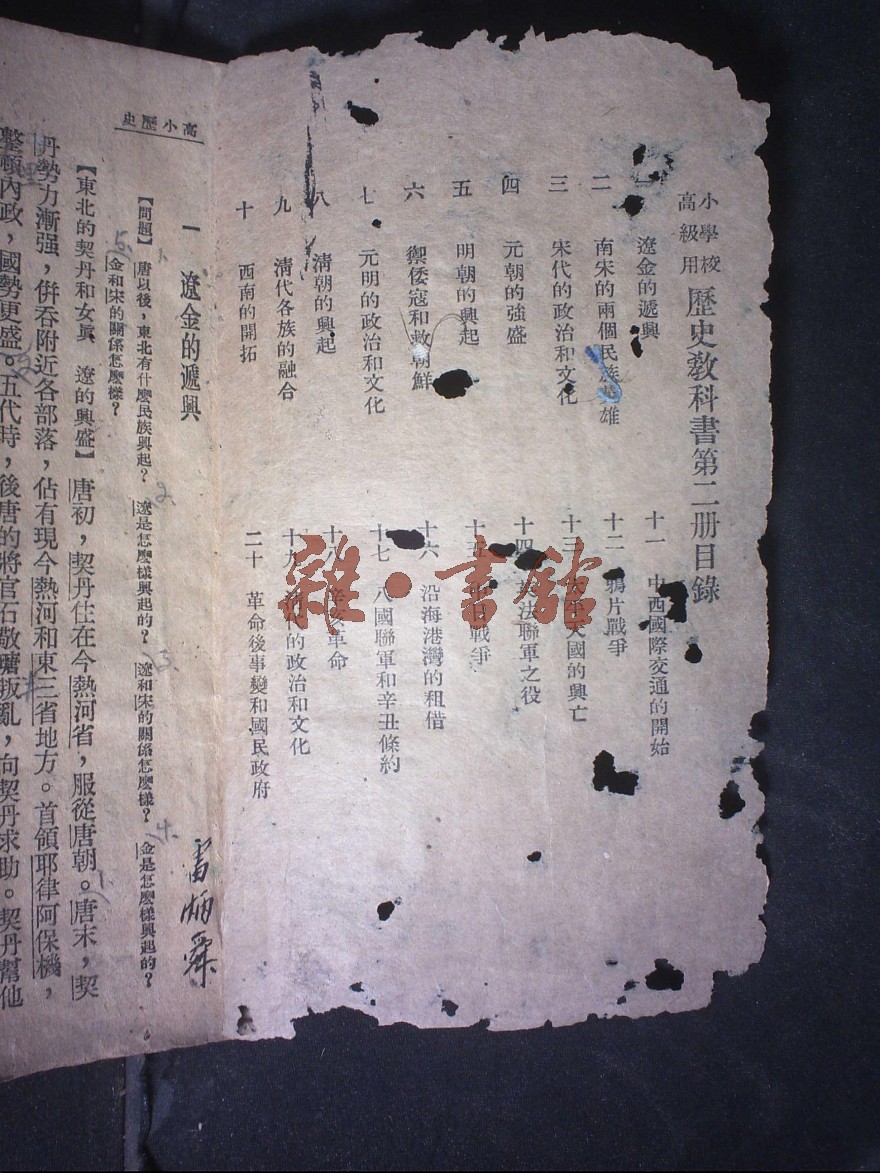 小學校高級用 歷史教科書第二册目錄
遼金的遞興
二 南宋的兩個民族英雄
三 宋代的政治和文化
四 元朝的強盛
五 明朝的興起
六 禦倭寇和救朝鮮
七 元明的政治和文化
八 清朝的興起
九 清代各族的融合
十 西南的開拓
十一 中西國際交通的開始
十二 鴉片戰爭
十三 太平天國的興亡
十四 法聯軍之役
十五 中日戰爭
十六 沿海港灣的租借
十七 八國聯軍和辛丑條約
十八 辛亥革命
十九 的政治和文化
二十 革命後事變和國民政府
雜·書館
高小歷史
一 遼金的遞興
雷炳舜
【問題】唐以後，東北有什麽民族興起？ 遼是怎麽樣興起的？ 遼和宋的關係怎麽樣？ 金是怎麽樣興起的？
金和宋的關係怎麽樣？
1. 2. 3. 4. 5.
【東北的契丹和女眞 遼的興盛】 唐初，契丹住在今熱河省，服從唐朝。唐末，契
丹勢力漸强，併吞附近各部落，佔有現今熱河和東三省地方。首領耶律阿保機，
整頓內政，國勢更盛。五代時，後唐的將官石敬瑭叛亂，向契丹求助。契丹幫他